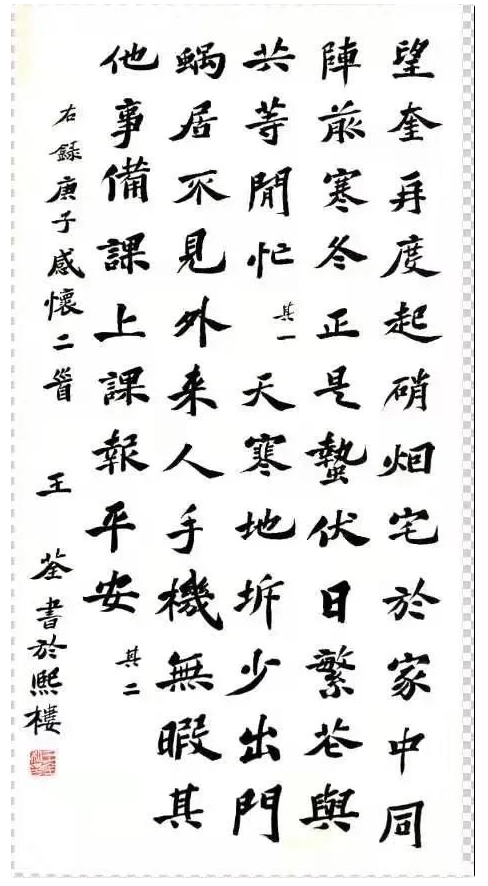 望奎再度起硝烟宅於家中同
陣前寒冬正是蟄伏日繁花與
共等閒忙 其一 天寒地坼少出門
蝸居不見外来人手機無暇其
他事備課上課報平安 其二
右録庚子感懷二首 王荃書於熙樓